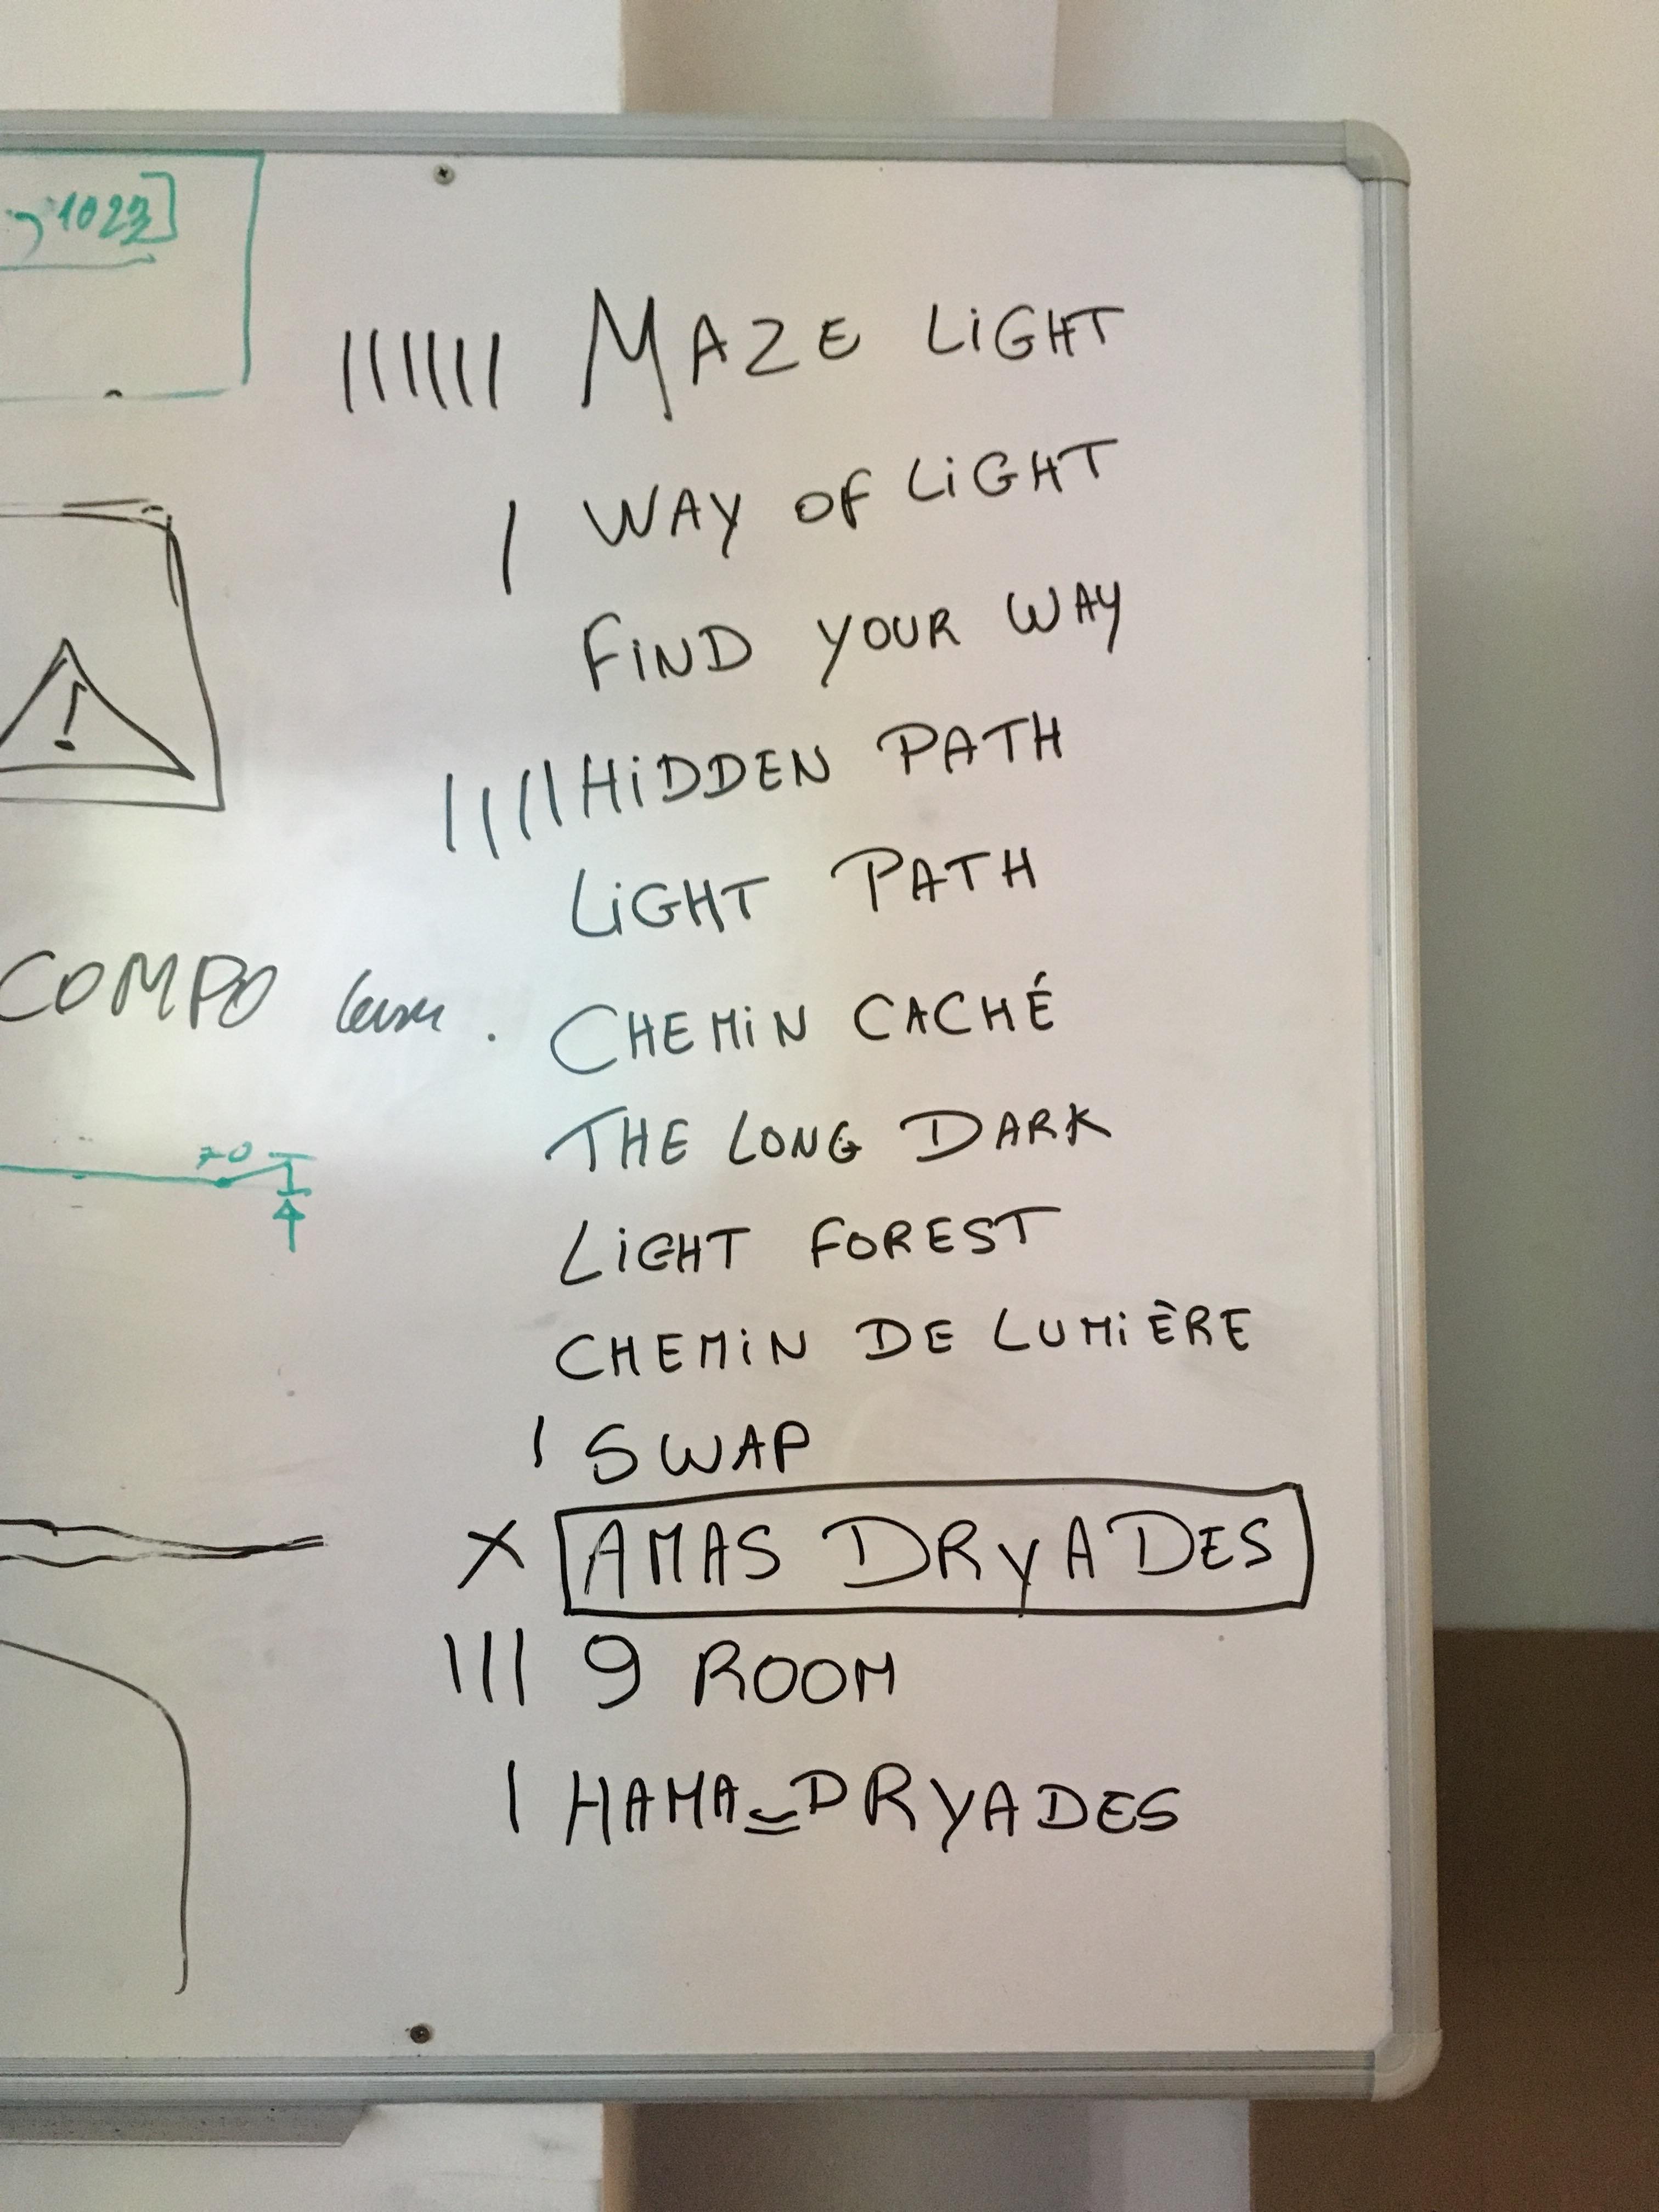 ,1023]
|||||| MAZE LiGHT
| WAY OF LiGHT
FiND YOUR WAY
!
|||| HiDDEN PATH
LiGHT PATH
COMPO
CHEMiN CACHÉ
THE LONG DARK
LiGHT FOREST
CHEMiN DE LUMiÈRE
| SWAP
X AMAS DRYADES
||| 9 ROOM
| HAMA=DRYADES